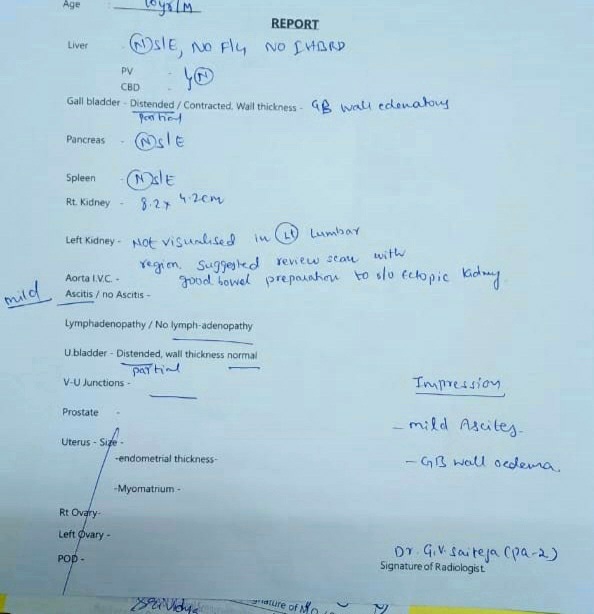 Age : 10yrs/M
REPORT
Liver - (N) S/E, NO F/L NO IHBRD
PV -
CBD - } (N)
Gall bladder - Distended / Contracted. Wall thickness - GB wall edematous
Partial
Pancreas - (N) S/E
Spleen - (N) S/E
Rt. Kidney - 8.2 x 4.2cm
Left Kidney - Not visualised in (Lt) Lumbar
region, suggested review scan with
good bowel preparation to r/o Ectopic Kidney.
Aorta I.V.C. -
mild Ascitis / no Ascitis -
Lymphadenopathy / No lymph-adenopathy
U.bladder - Distended, wall thickness normal
partial
V-U Junctions -
Impression
Prostate -
- mild Ascites.
Uterus - Size -
-endometrial thickness-
- GB wall oedema.
-Myomatrium -
Rt Ovary-
Left Ovary -
POD -
Dr. G.V. Saiteja (PA-2)
Signature of Radiologist